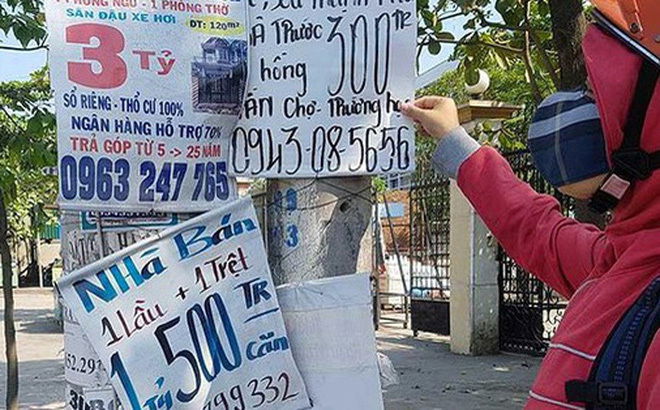 PHÒNG NGỦ - 1 PHÒNG THỜ
SÂN ĐẬU XE HƠI
DT: 120m²
3 TỶ
SỔ RIÊNG - THỔ CƯ 100%
NGÂN HÀNG HỖ TRỢ 70%
TRẢ GÓP TỪ 5 -> 25 NĂM
0963 247 765
Trước
hồng 300 TR
Chợ - Trường học
0943-08-5656
Nhà Bán
1 Lầu + 1 Trệt
1 Tỷ 500 TR
Căn
799332